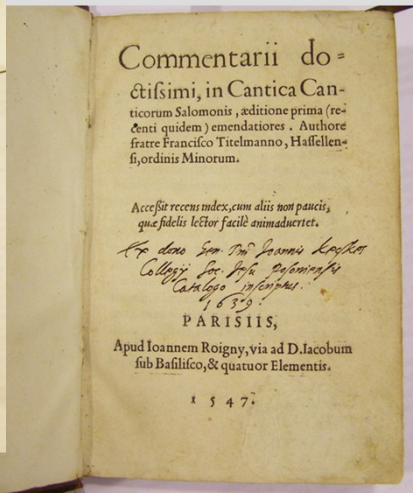 Commentarii do=
ctissimi, in Cantica Can-
ticorum Salomonis, æditione prima (re-
centi quidem) emendatiores. Authore
fratre Francisco Titelmanno, Hassellen-
si, ordinis Minorum.
Accessit recens index, cum aliis non paucis,
quæ fidelis lector facilè animaduertet.
Ex dono Gen. Dni Joannis
Collegij Soc. Jesu Posoniensis
Catalogo inscriptus.
1639.
PARISIIS,
Apud Ioannem Roigny, via ad D. Iacobum
sub Basilisco, & quatuor Elementis.
1547.